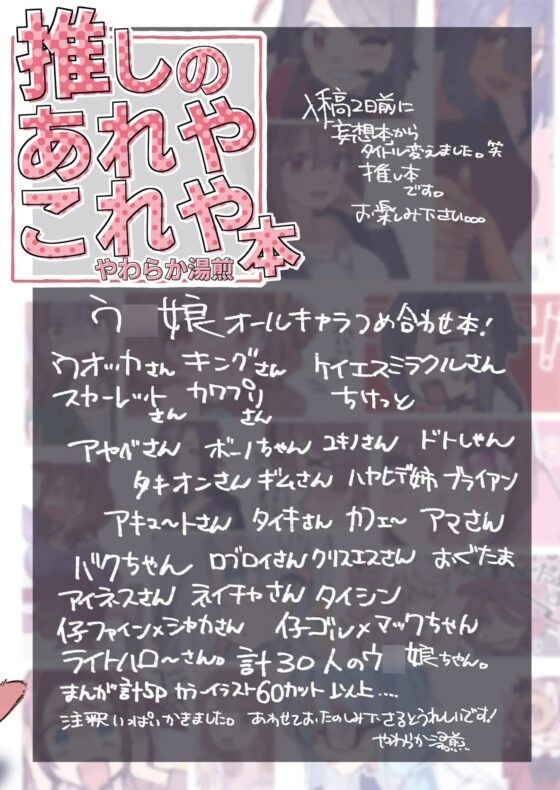 推しの
あれや
これや本
やわらか湯煎
入稿2日前に
「妄想本から
タイトル変えました。笑
推し本
です。
お楽しみ下さい。。。
ウ 娘 オールキャラつめ合わせ本!
ウオッカさん キングさん ケイエスミラクルさん
スカーレットさん カワプリさん ちけっと
アヤベさん ボーノちゃん ユキノさん ドトしゃん
タキオンさん ギムさん ハヤヒデ姉 ブライアン
アキュートさん タイキさん カフェ〜 アマさん
バクちゃん ロブロイさん クリスエスさん おぐたま
アイネスさん ネイチャさん タイシン
仔ファイン×シャカさん 仔ゴル×マックちゃん
ライトハロ〜さん。計30人のウ 娘ちゃん。
まんが計5P カラーイラスト60カット以上....
注釈いっぱいかきました。 あわせておたのしみ下さるとうれしいです!
やわらか湯煎